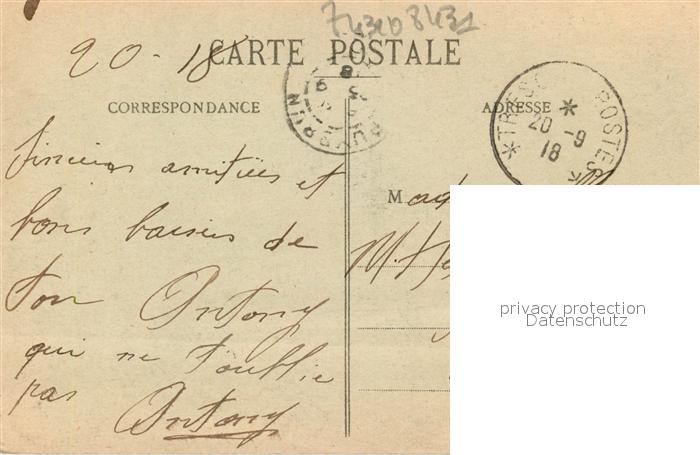 7.4310 8431
20 - 18
CARTE POSTALE
CORRESPONDANCE
ADRESSE
* TRÉSOR * POSTES *
20 -9
18
Sincères amitiées et
bons baisers de
ton Antony
qui ne t'oublie
pas
Antony
M
privacy protection
Datenschutz